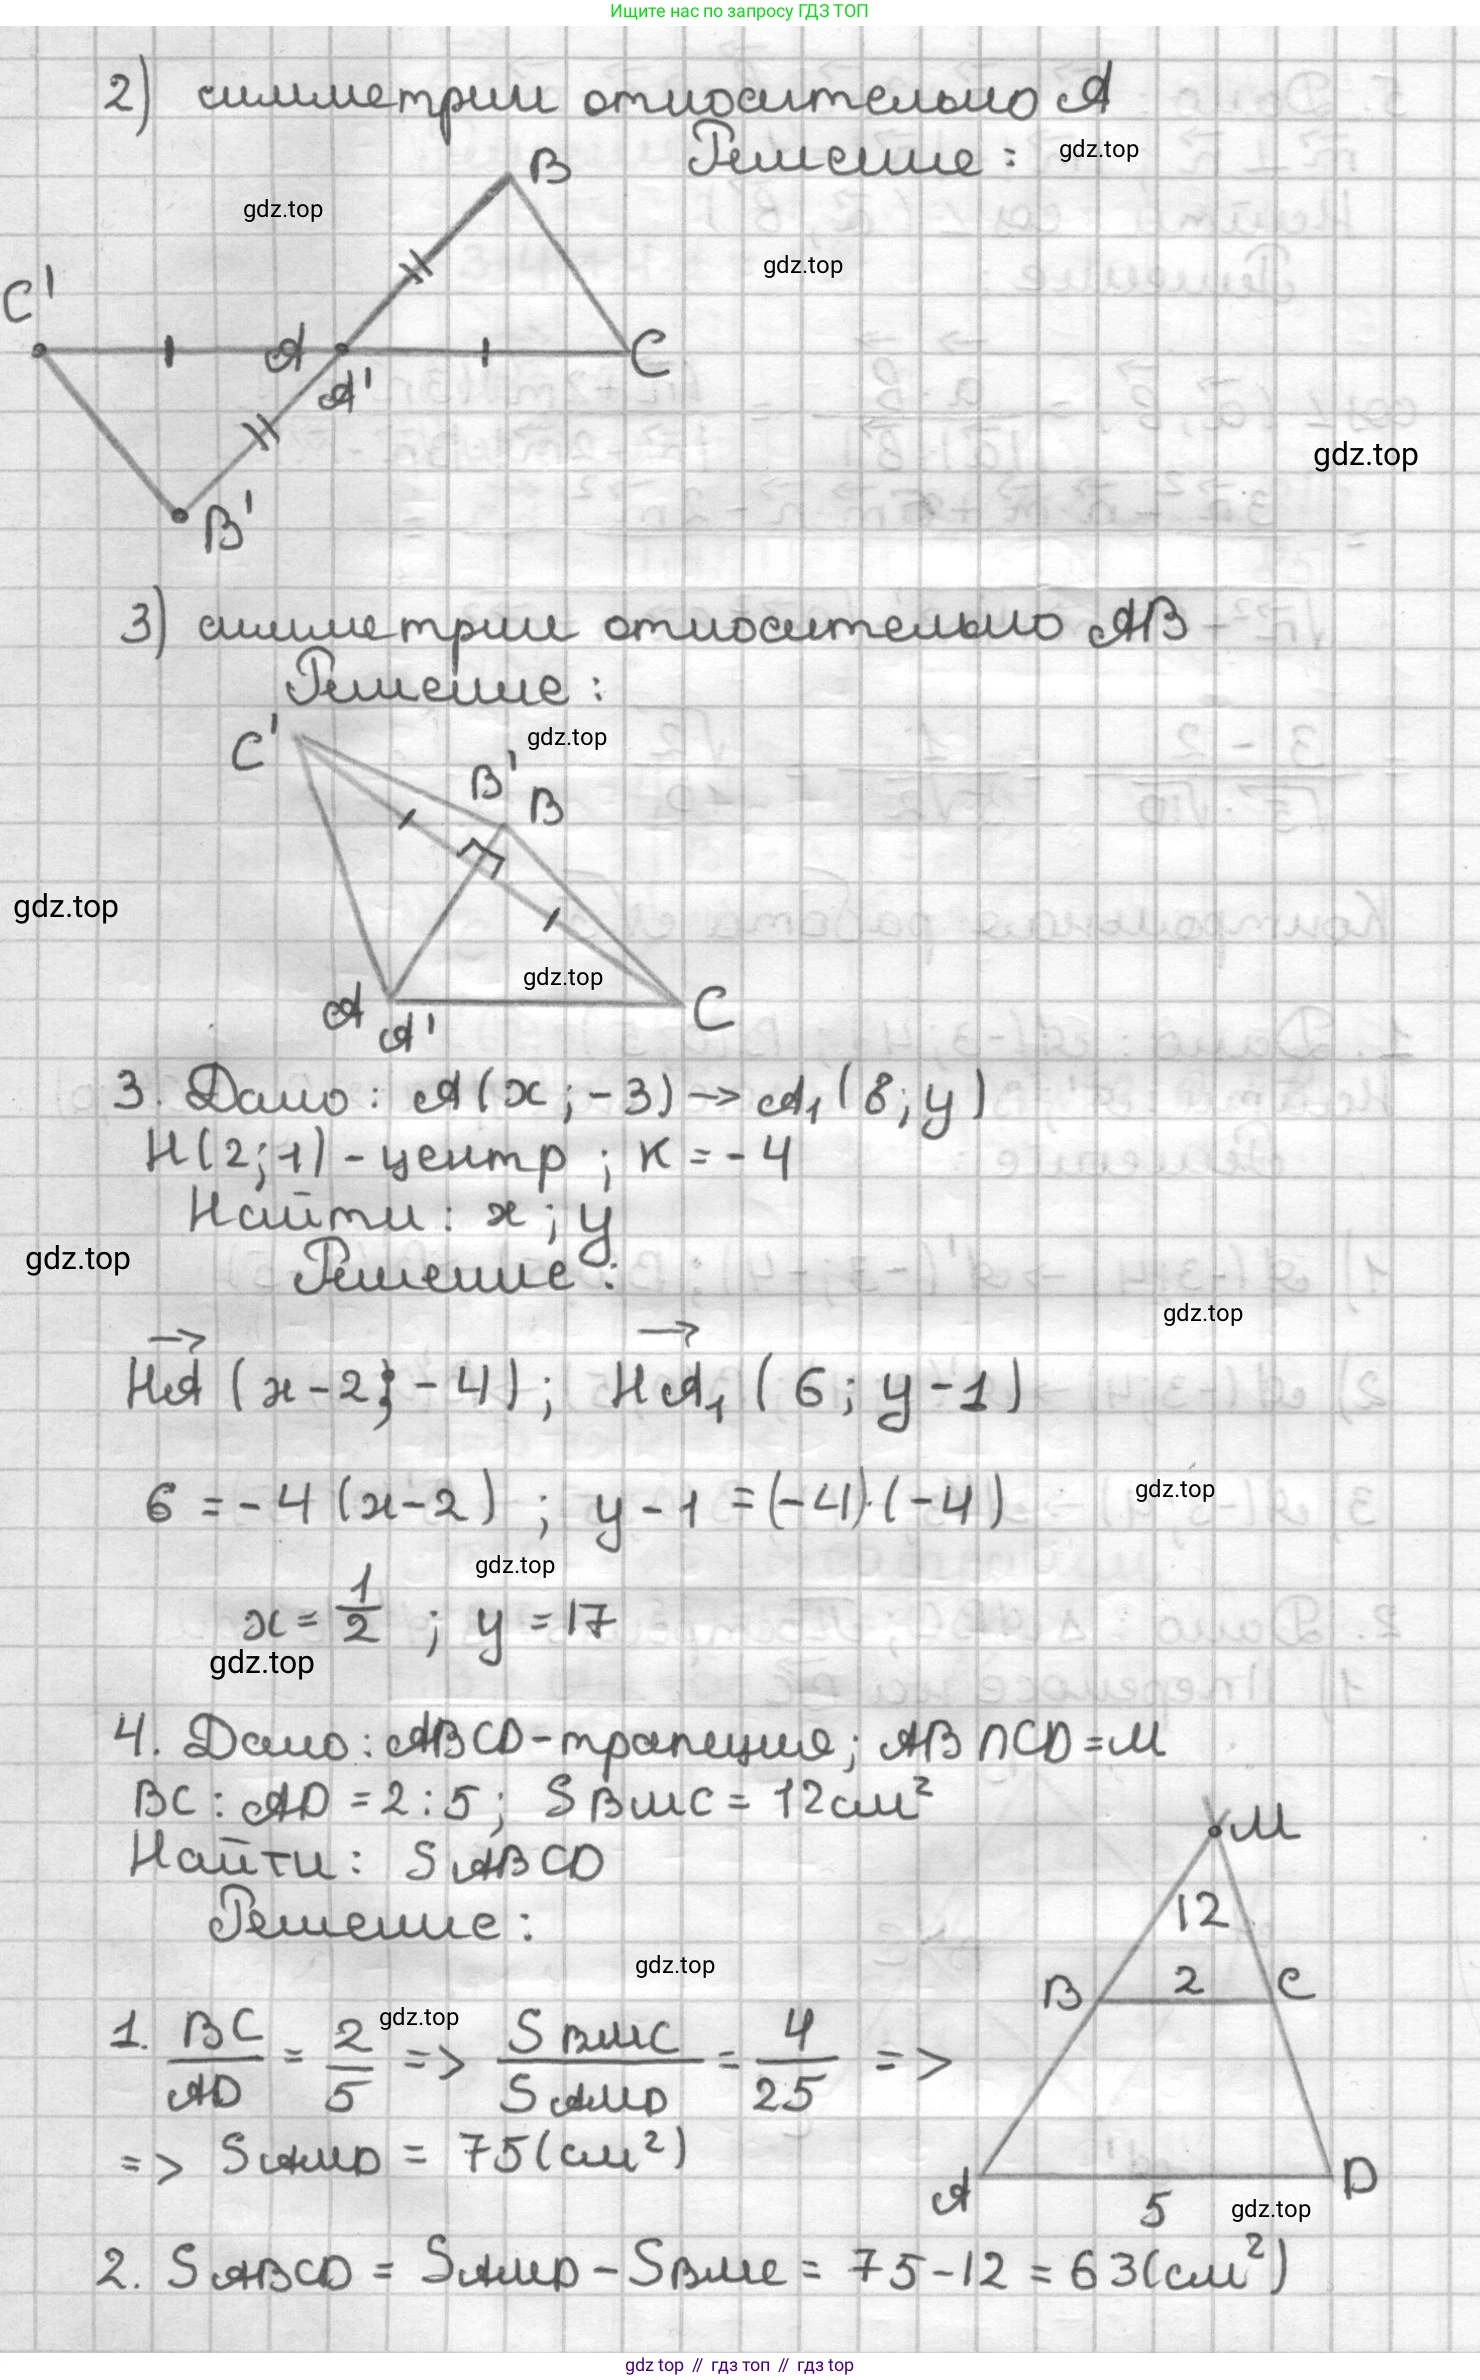 Ищите нас по запросу ГДЗ ТОП
2) симметрии относительно A
Решение:
gdz.top
B
gdz.top
gdz.top
C'
A
C
A'
gdz.top
B'
3) симметрии относительно AB
Решение:
C'
gdz.top
B'
B
gdz.top
gdz.top
A
A'
C
3. Дано: A(x; -3) → A₁(8; y)
H(2; 1) - центр; K = -4
Найти: x; y
gdz.top
Решение:
gdz.top
HA→ (x-2; -4); HA₁→ (6; y-1)
6 = -4(x-2); y-1 = (-4)·(-4)
gdz.top
gdz.top
x = 1/2; y = 17
gdz.top
4. Дано: ABCD - трапеция; AB ∩ CD = M
BC : AD = 2 : 5; S BMC = 12 см²
Найти: S ABCD
Решение:
M
12
gdz.top
B
2
C
1. BC/AD = 2/5 => S BMC/S AMD = 4/25 =>
gdz.top
=> S AMD = 75 (см²)
A
5
D
gdz.top
2. S ABCD = S AMD - S BMC = 75 - 12 = 63 (см²)
gdz top // гдз топ // гдз top